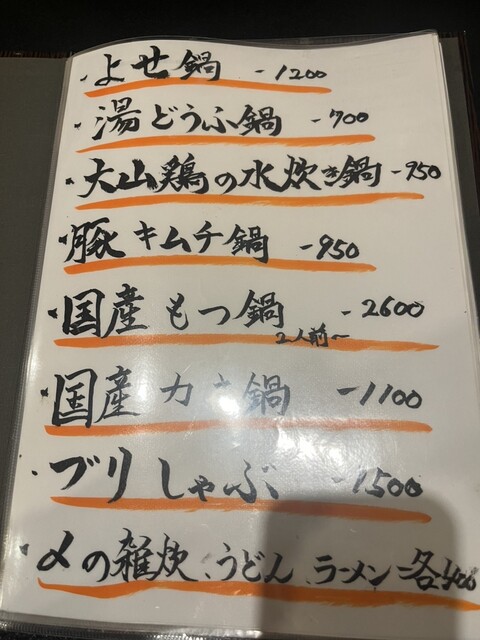 ・よせ鍋 -1200
・湯どうふ鍋 -700
・大山鶏の水炊き鍋 -950
・豚キムチ鍋 -950
・国産もつ鍋 -2600
2人前〜
・国産カキ鍋 -1100
・ブリしゃぶ -1500
・〆の雑炊、うどん、ラーメン-各400